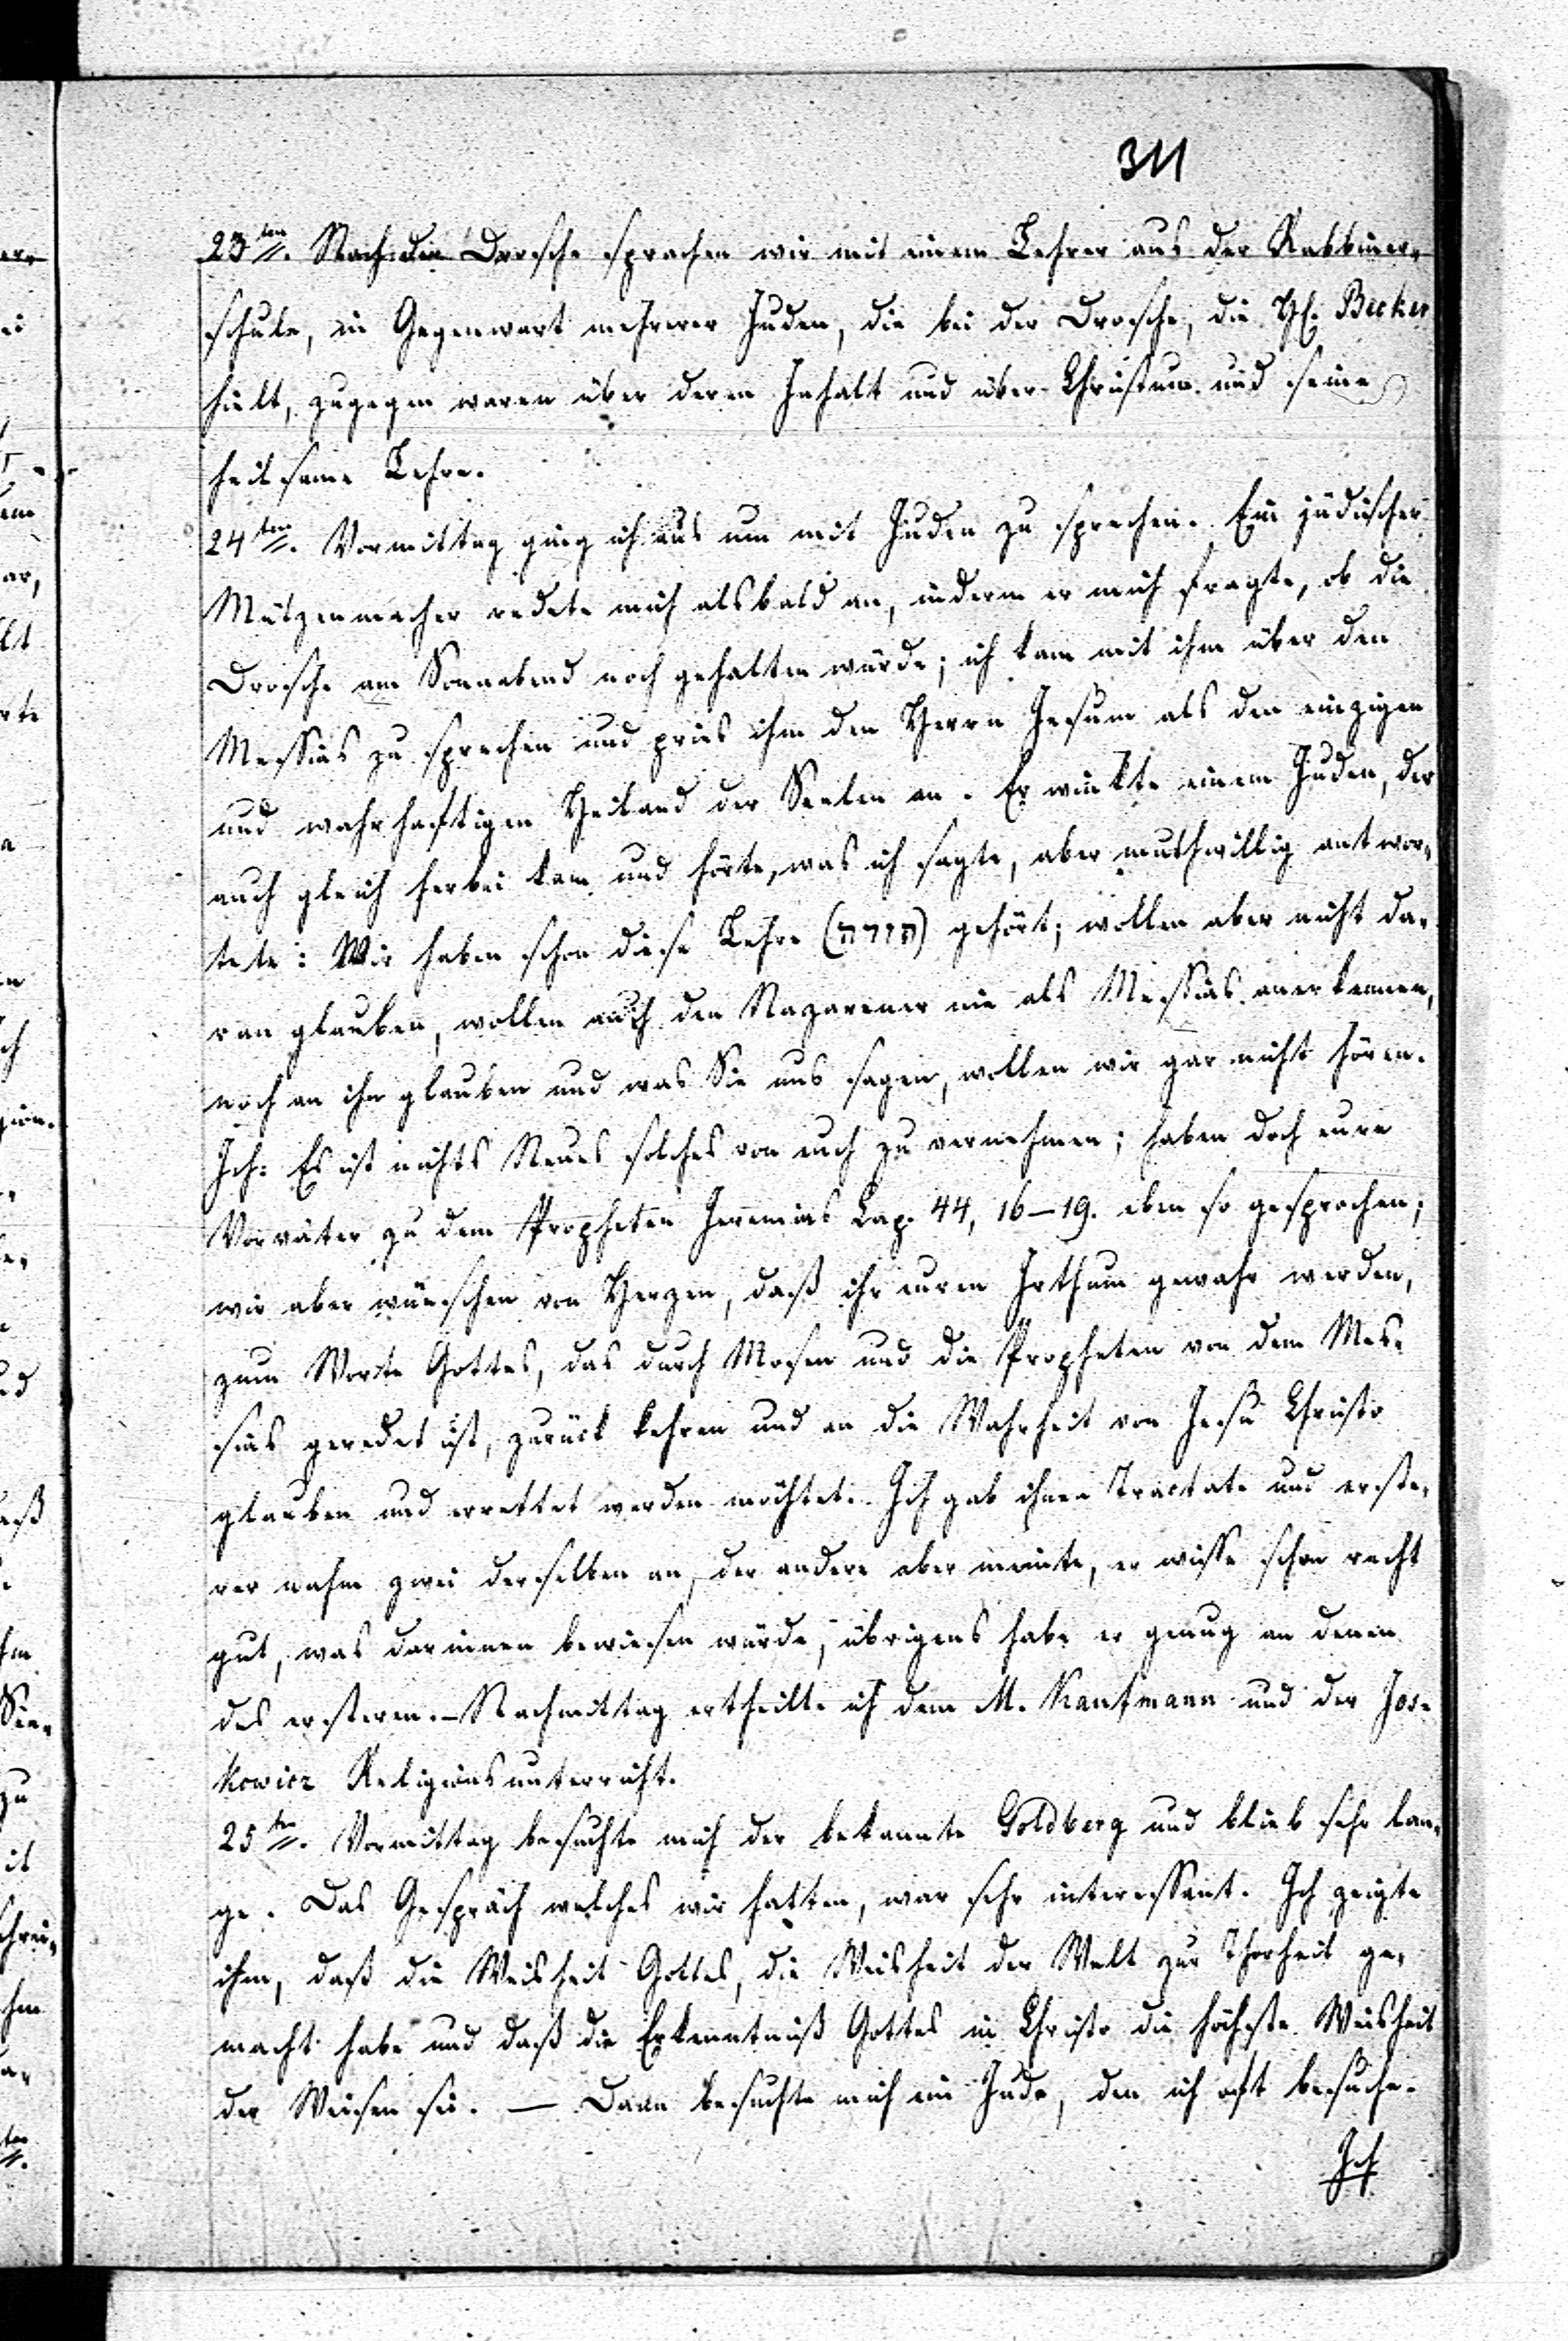 311
23ten. Nach der Drosche sprachen wir mit einem Lehrer aus der Rabbiner-
schule, in Gegenwart mehrerer Juden, die bei der Drosche, die H. Becker
hielt, zugegen waren über deren Inhalt und über Christum und seine
heilsame Lehre.
24ten. Vormittag ging ich aus um mit Juden zu sprechen. Ein jüdischer
Mützenmacher redete mich alsbald an, indem er mich fragte, ob die
Drosche am Sonnabend noch gehalten würde; ich kam mit ihm über den
Messias zu sprechen und pries ihm den Herrn Jesum als den einzigen
und wahrhaftigen Heiland der Seelen an. Er winkte einem Juden, der
auch gleich herbei kam und hörte, was ich sagte, aber muthwillig antwor-
tete: Wir haben schon diese Lehre (תורה) gehört; wollen aber nicht da-
ran glauben, wollen auch den Nazarener nie als Messias anerkennen,
noch an ihn glauben und was Sie uns sagen, wollen wir gar nicht hören.
Ich: Es ist nichts Neues solches von euch zu vernehmen; haben doch eure
Vorväter zu dem Propheten Jeremias Cap. 44, 16–19. eben so gesprochen;
wir aber wünschen von Herzen, daß ihr euren Irthum gewahr werden,
zum Worte Gottes, das durch Mosen und die Propheten von dem Mes-
sias geredet ist, zurück kehren und an die Wahrheit von Jesu Christo
glauben und errettet werden möchtet. Ich gab ihnen Tractate und erste-
rer nahm zwei derselben an, der andere aber meinte, er wisse schon recht
gut, was darinnen bewiesen würde, übrigens habe er genug an denen
des ersteren. – Nachmittag ertheilte ich dem M. Kaufmann und der Jos-
kowicz Religionsunterricht.
25ten. Vormittag besuchte mich der bekannte Goldberg und blieb sehr lan-
ge. Das Gespräch welches wir hatten, war sehr interessant. Ich zeigte
ihm, daß die Weisheit Gottes, die Weisheit der Welt zur Thorheit ge-
macht habe und daß die Erkenntniß Gottes in Christo die höchste Weisheit
der Weisen sei. — Dann besuchte mich ein Jude, den ich oft besuche.
Ich